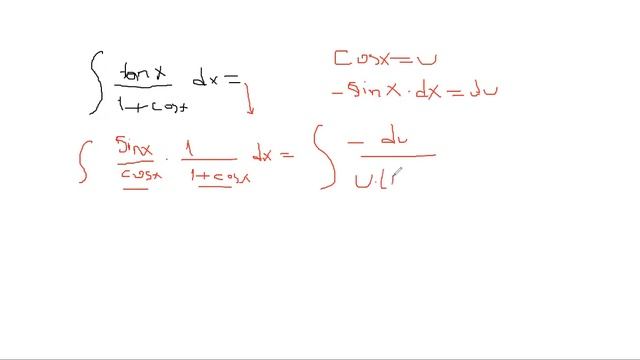 ∫ tanx / 1+cosx dx =
cosx = u
-sinx·dx = du
∫ sinx / cosx · 1 / 1+cosx dx = ∫ -du / u·(1